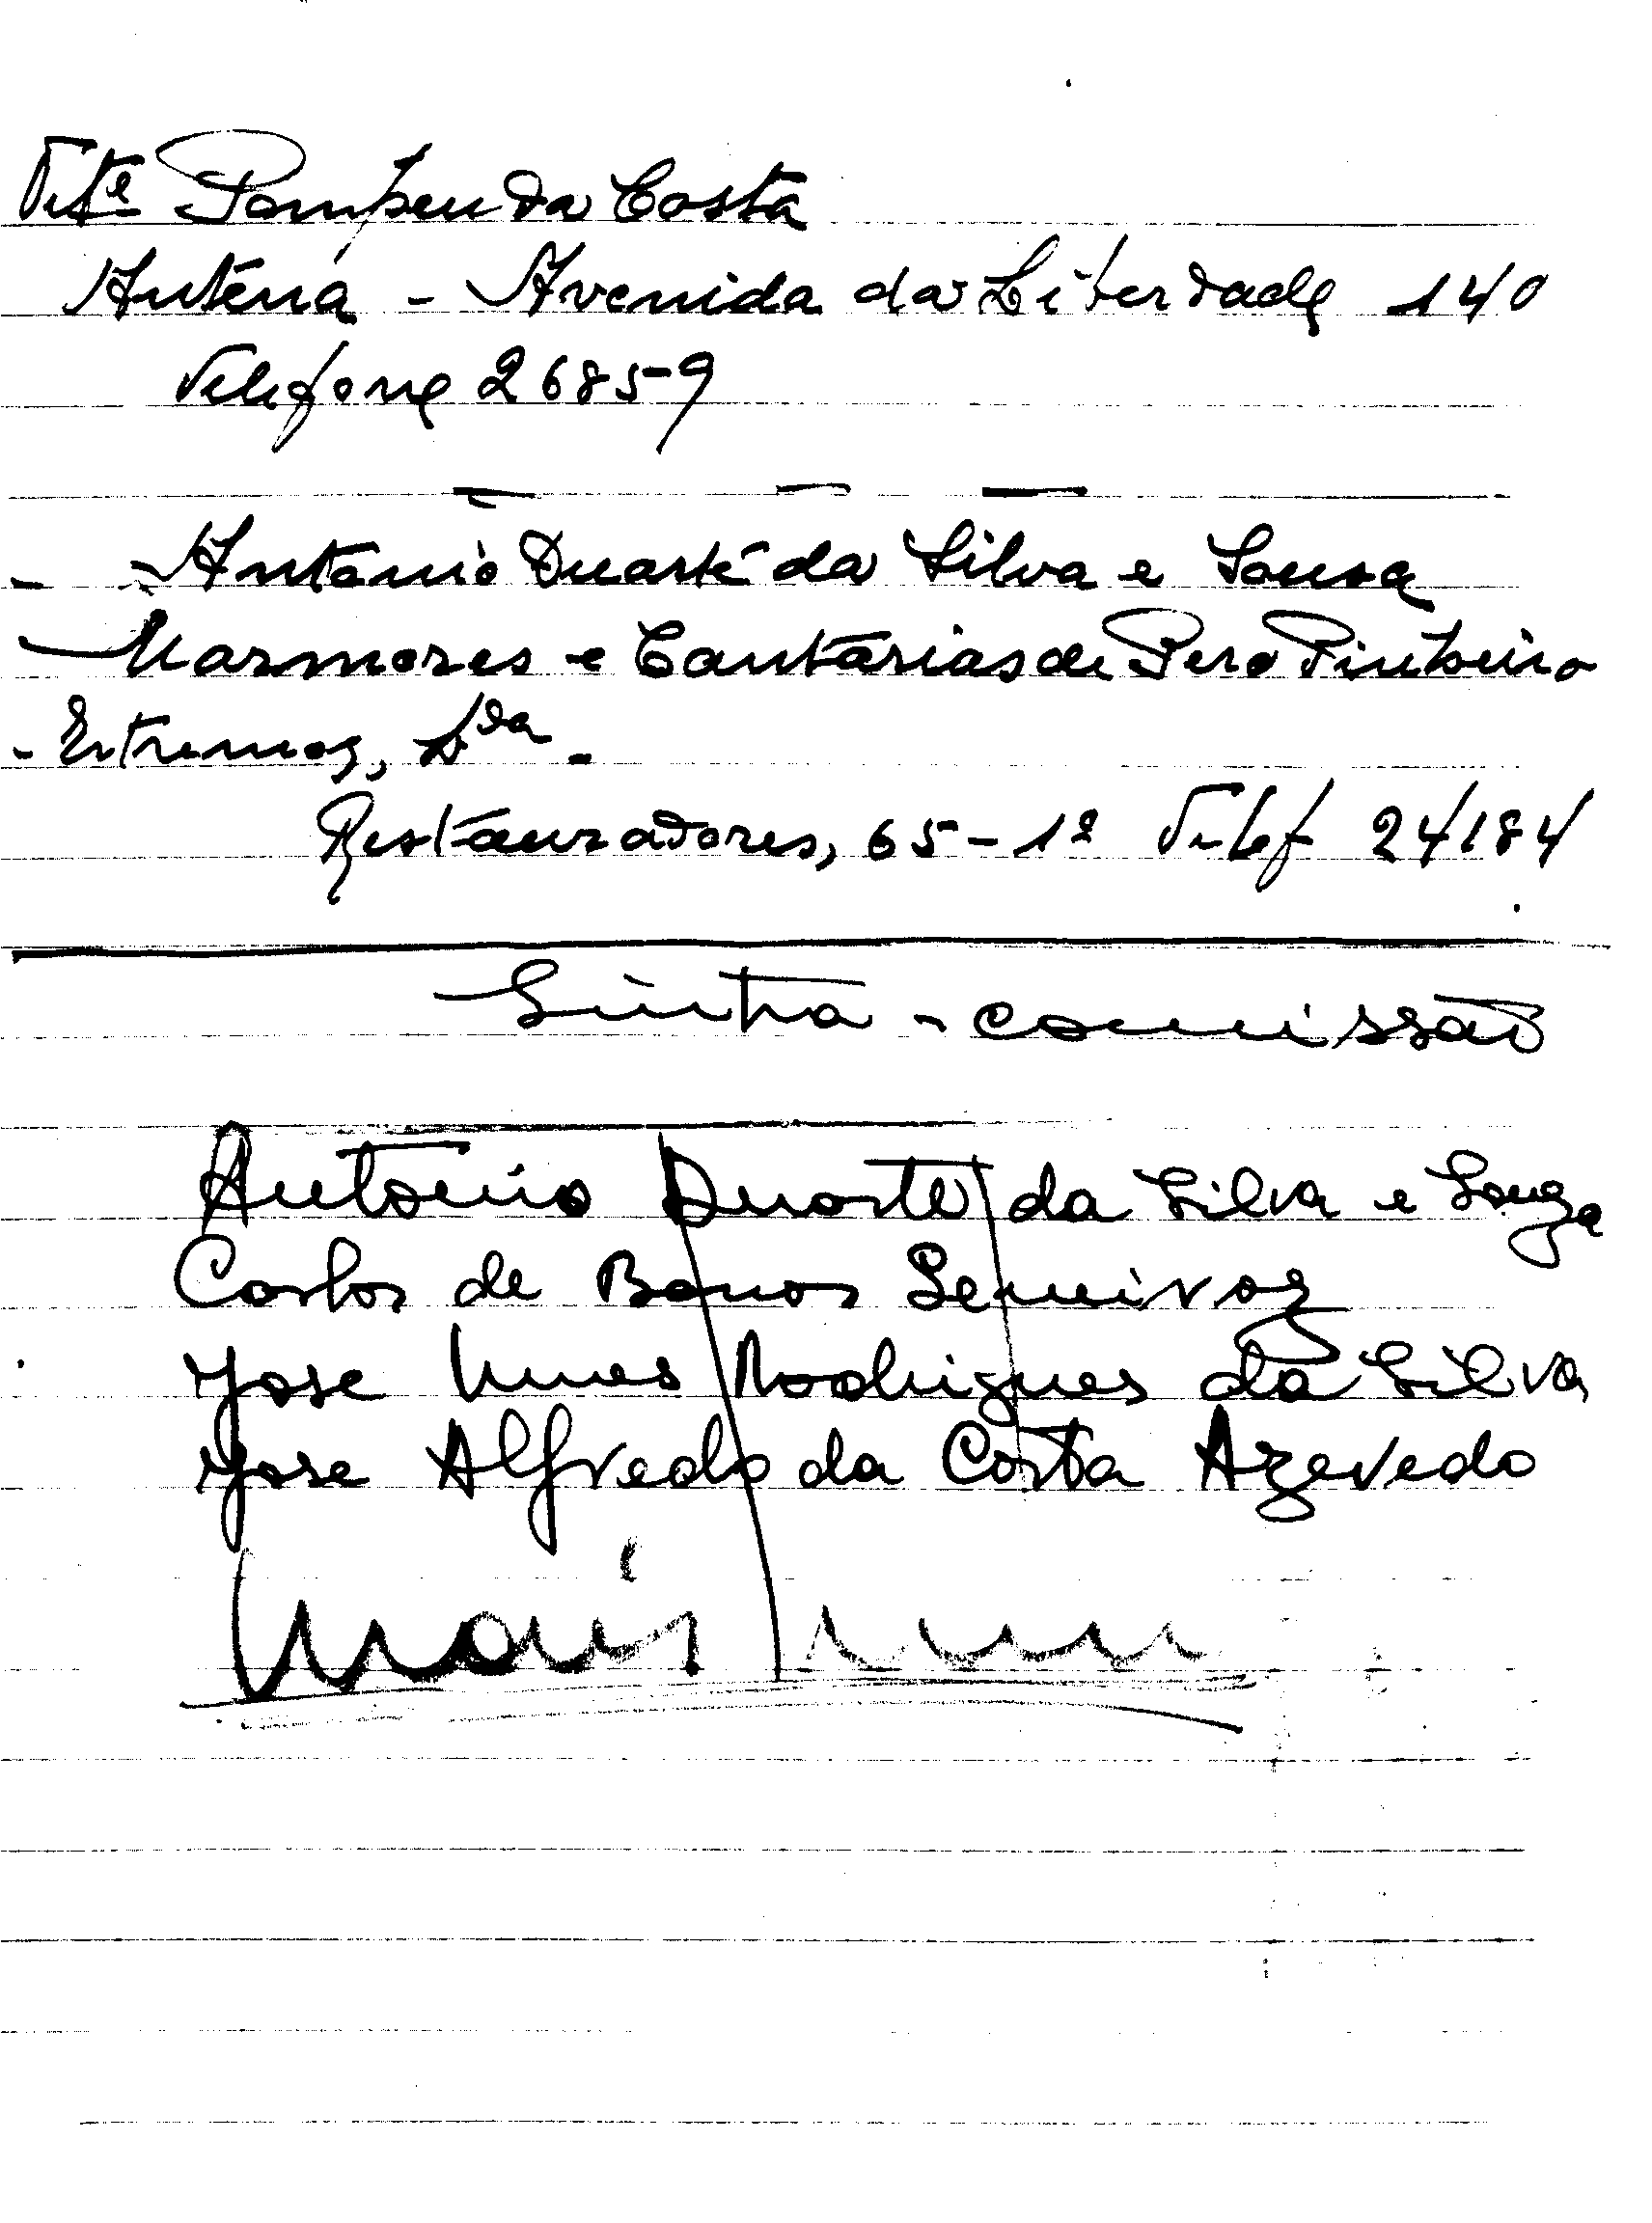 Tte Pompeu da Costa
Anténa - Avenida da Liberdade 140
Telefone 26859
- António Duarte da Silva e Sousa
Marmores e Cantarias de Pero Pinheiro
- Estremoz, Lda -
Restauradores, 65-1º Telef 24184
Sintra - comissão
António Duarte da Silva e Souza
Carlos de Barros Seruivos
Jose Nunes Rodrigues da Silva
Jose Alfredo da Costa Azevedo
Mais